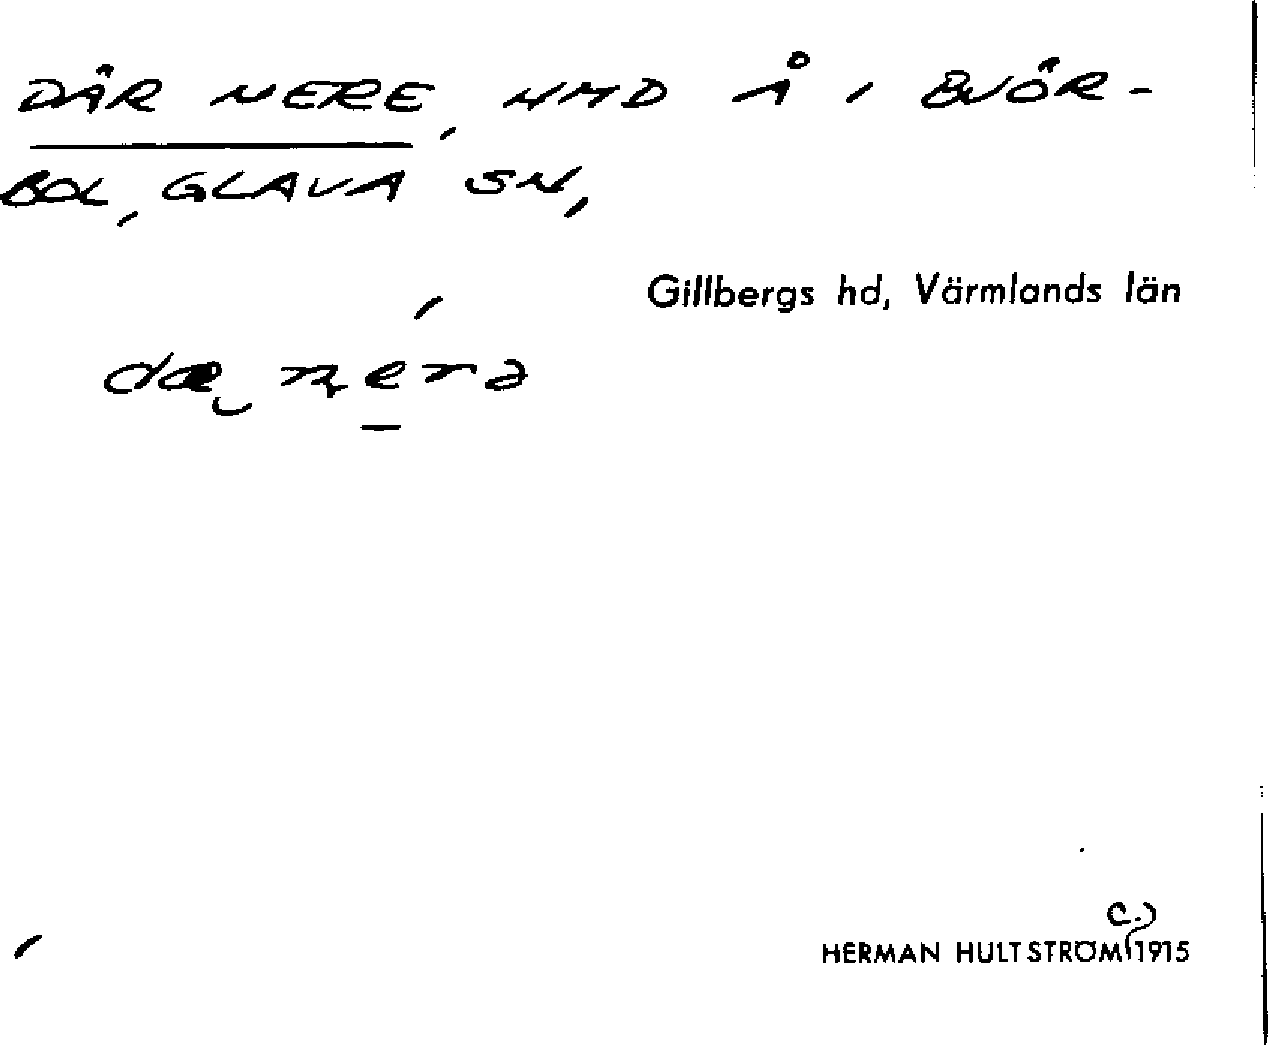 DÄR NERE, HMD Å I BJÖR-
BOL, GLAVA SN,
Gillbergs hd, Värmlands län
dæ neרə
HERMAN HULTSTRÖM c.) 1915